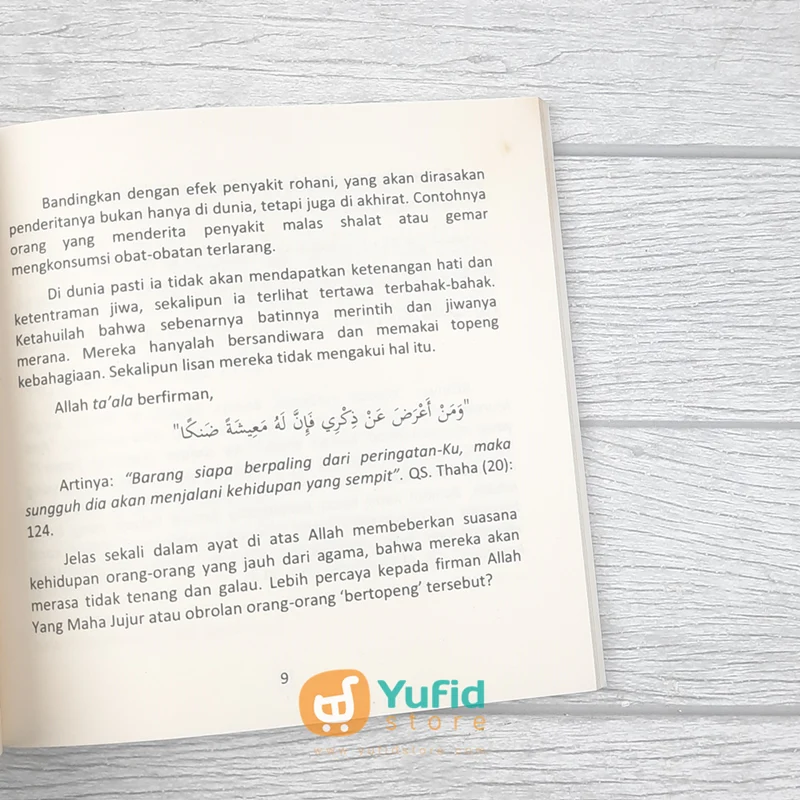 Bandingkan dengan efek penyakit rohani, yang akan dirasakan
penderitanya bukan hanya di dunia, tetapi juga di akhirat. Contohnya
orang yang menderita penyakit malas shalat atau gemar
mengkonsumsi obat-obatan terlarang.
Di dunia pasti ia tidak akan mendapatkan ketenangan hati dan
ketentraman jiwa, sekalipun ia terlihat tertawa terbahak-bahak.
Ketahuilah bahwa sebenarnya batinnya merintih dan jiwanya
merana. Mereka hanyalah bersandiwara dan memakai topeng
kebahagiaan. Sekalipun lisan mereka tidak mengakui hal itu.
Allah ta’ala berfirman,
"وَمَنْ أَعْرَضَ عَنْ ذِكْرِي فَإِنَّ لَهُ مَعِيشَةً ضَنكًا"
Artinya: “Barang siapa berpaling dari peringatan-Ku, maka
sungguh dia akan menjalani kehidupan yang sempit”. QS. Thaha (20):
124.
Jelas sekali dalam ayat di atas Allah membeberkan suasana
kehidupan orang-orang yang jauh dari agama, bahwa mereka akan
merasa tidak tenang dan galau. Lebih percaya kepada firman Allah
Yang Maha Jujur atau obrolan orang-orang ‘bertopeng’ tersebut?
9
Yufid
store